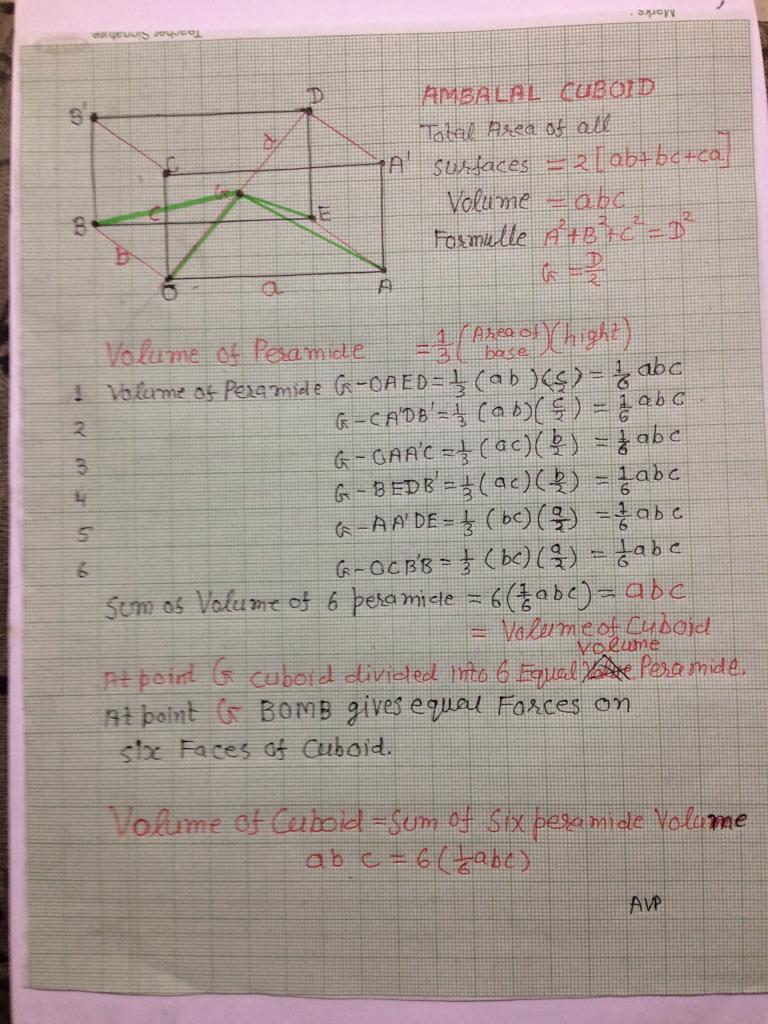 Marks:
Teacher Signature
AMBALAL CUBOID
Total Area of all
surfaces = 2[ab+bc+ca]
Volume = abc
Formulle A²+B²+C²=D²
G = D/2
B' D
C A'
G
B C E
b
O a A
Volume of Peramide = 1/3 (Area of base)(hight)
1 Volume of Peramide G-OAED = 1/3 (ab)(c/2) = 1/6 abc
2 G-CA'DB' = 1/3 (ab)(c/2) = 1/6 abc
3 G-OAA'C = 1/3 (ac)(b/2) = 1/6 abc
4 G-BEDB' = 1/3 (ac)(b/2) = 1/6 abc
5 G-AA'DE = 1/3 (bc)(a/2) = 1/6 abc
6 G-OCB'B = 1/3 (bc)(a/2) = 1/6 abc
Sum os Volume of 6 peramide = 6(1/6 abc) = abc
= Volume of Cuboid
At point G cuboid divided into 6 Equal Volume Peramide.
At point G BOMB gives equal Forces on
six Faces of Cuboid.
Volume of Cuboid = Sum of Six peramide Volume
abc = 6(1/6 abc)
AVP